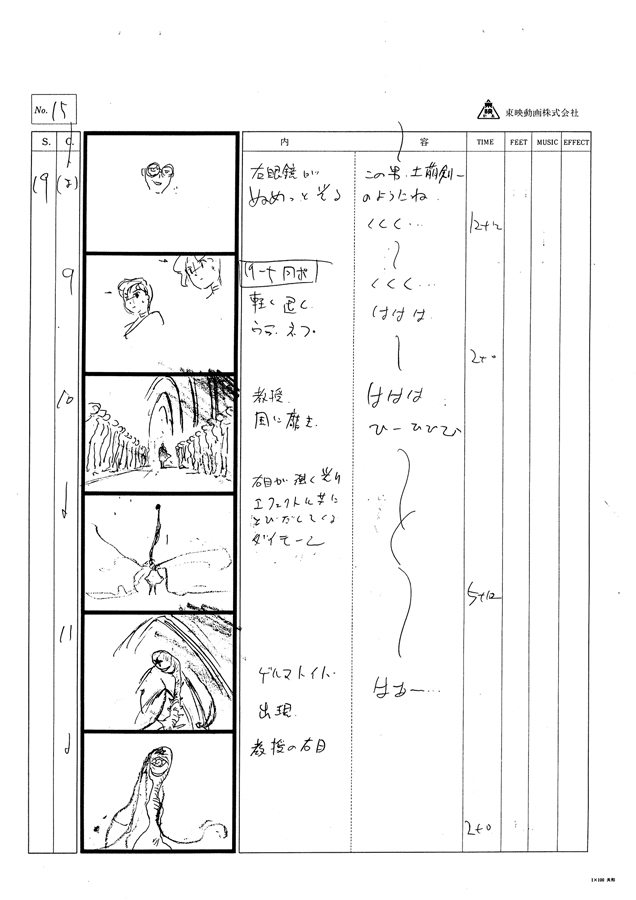 No. 15
東映動画株式会社
S. C. 内 容 TIME FEET MUSIC EFFECT
19
右眼鏡が
ぬめっと光る
この男、土萠創一
のようにね。
くくく…
12+12
9
19-7 同ポ
軽く
くくく…
ははは
2+0
10
教授、
ははは
ひーひひひ
右目が強く光り
エフェクトと共に
とびだしてくる
ダイモーン
5+12
11
ゲルマトイド
出現
はあー…
教授の右目
2+0